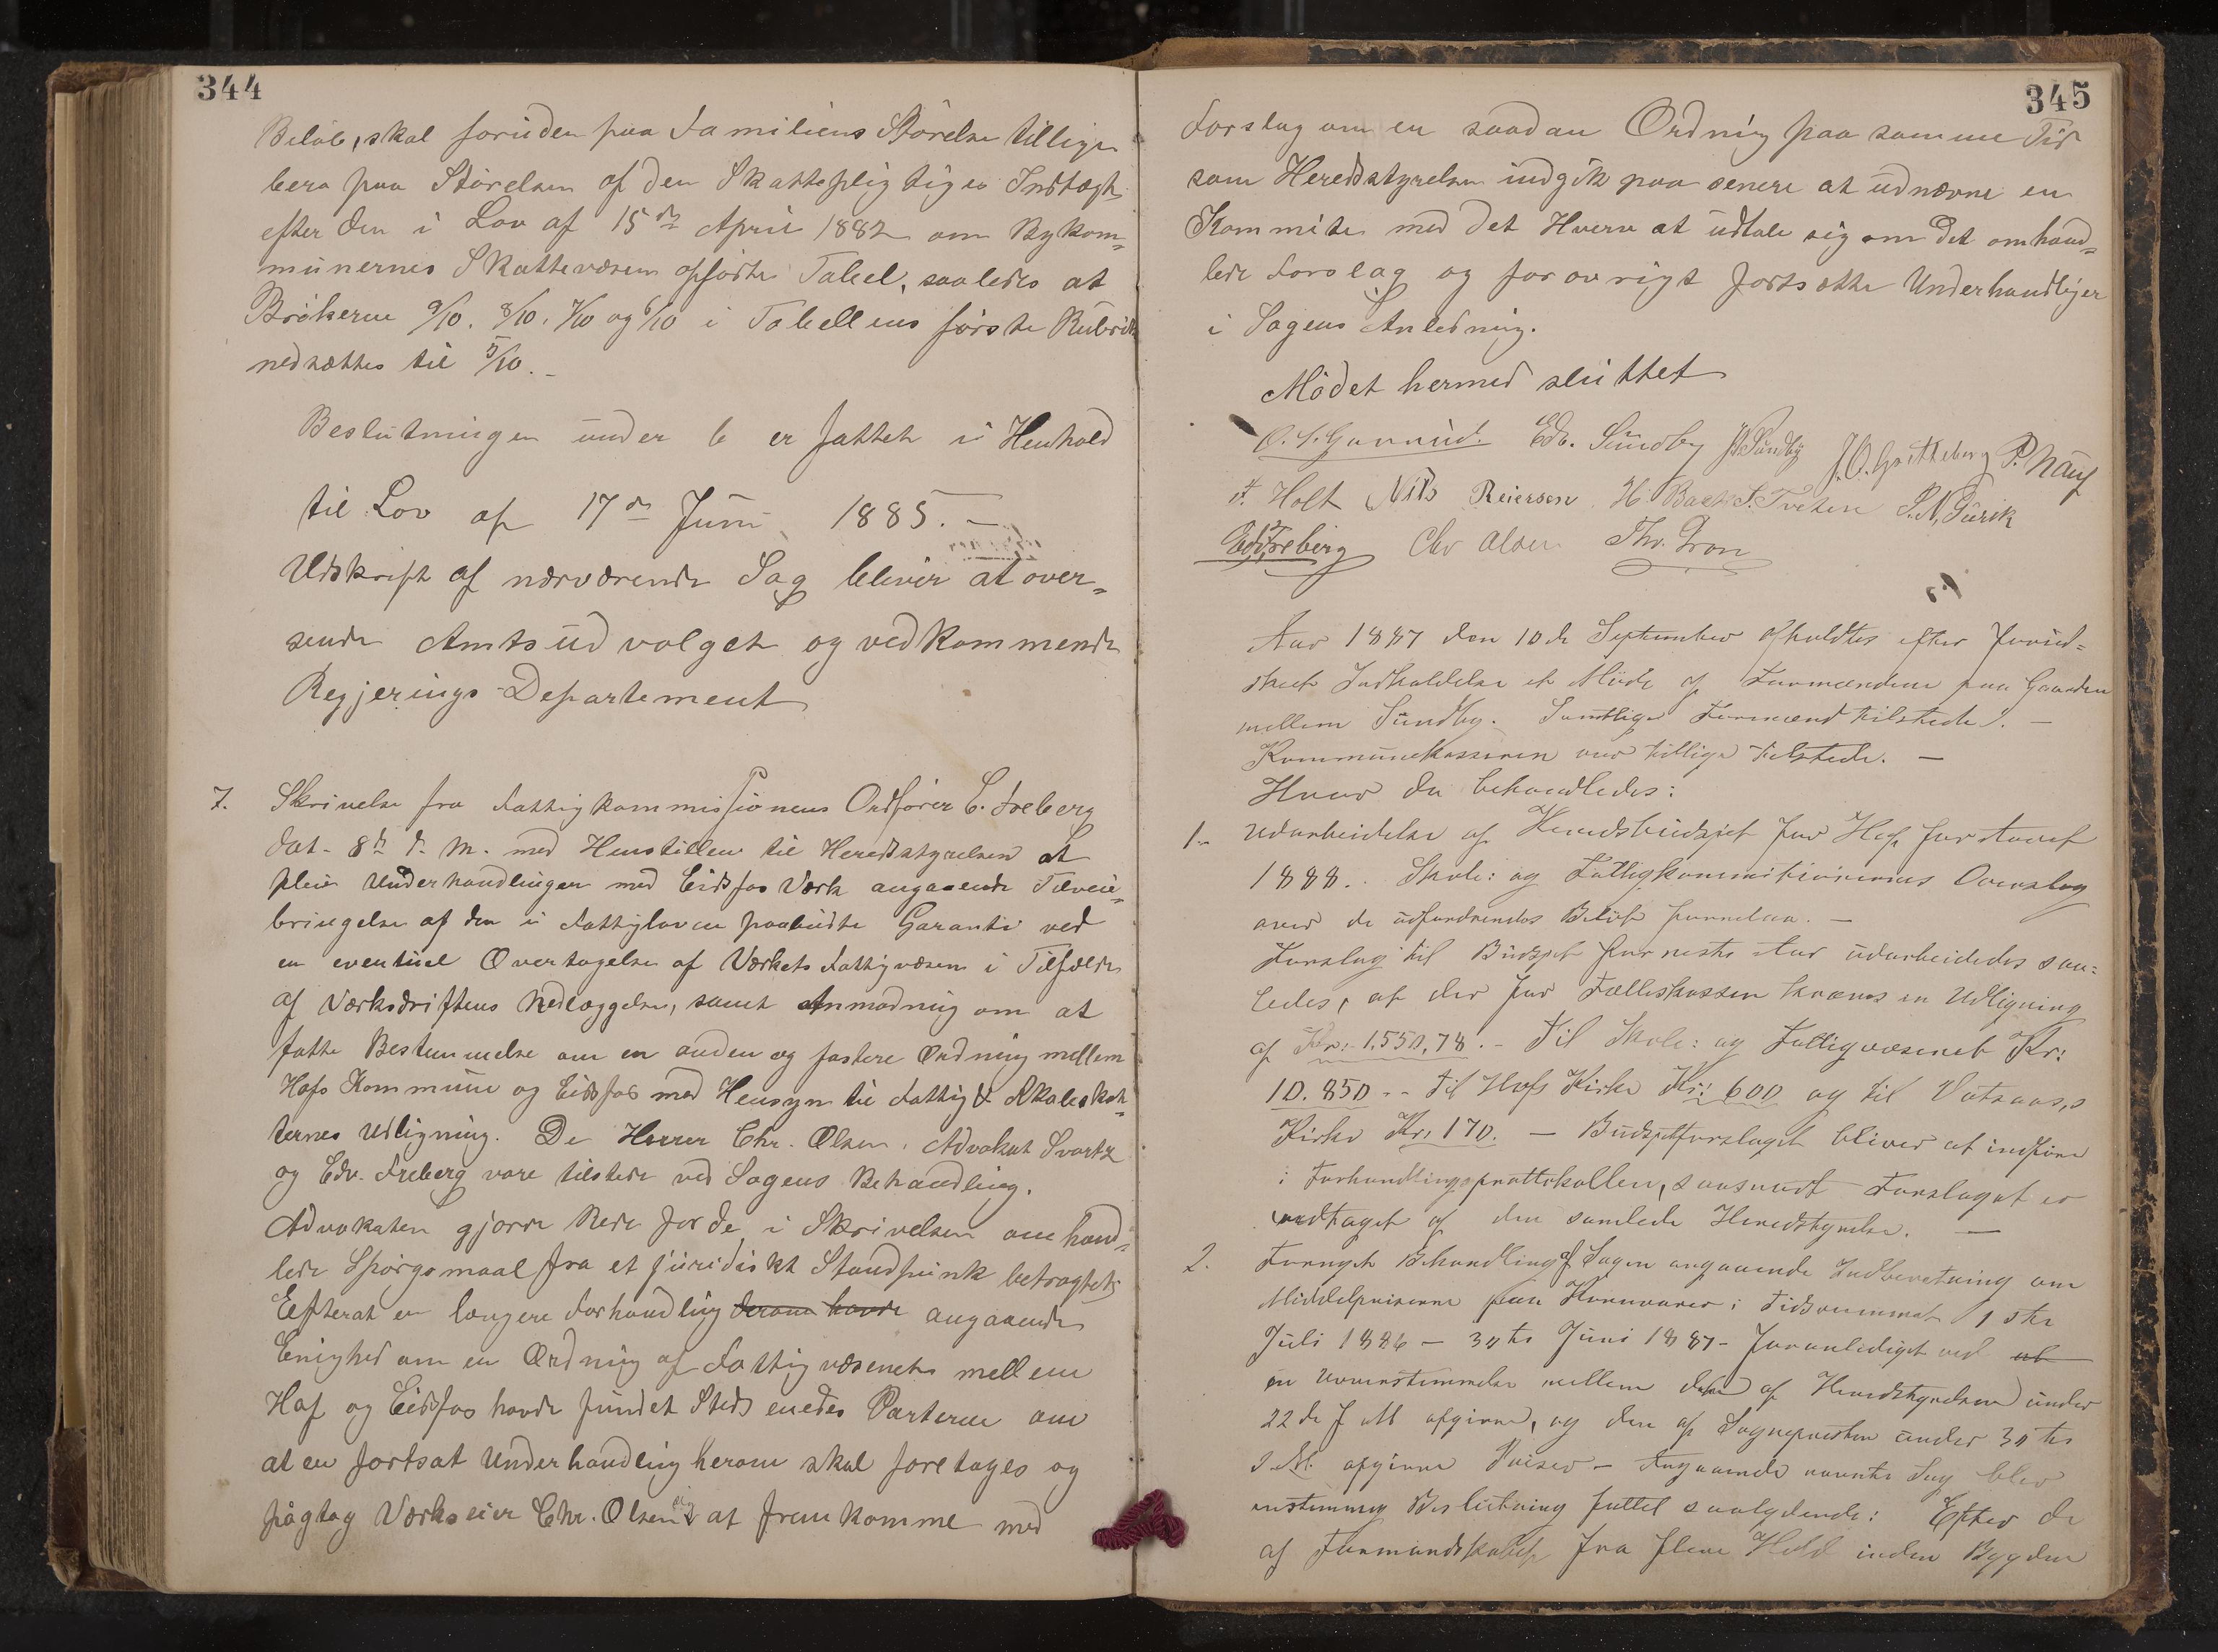 344
Beløb, skal foruden paa Familiens Størelse tillige
bero paa Størelsen af den Skattepligtiges Indtægt
efter den i Lov af 15de April 1882 om Bykom=
munernes Skattevæsen opførte Tabel, saaledes at
Brøkerne 9/10. 8/10. 7/10 og 6/10 i Tabellens første Rubrik
nedsættes til 5/10. –
Beslutningen under b er fattet i Henhold
til Lov af 17de Juni 1885. –
Udskrift af nærværende Sag bliver at over=
sende Amtsudvalget og vedkommende
Regjerings-Departement
7. Skrivelse fra Fattigkommissionens Ordfører E. Freberg
dat. 8de d. M. med Henstillen til Heredsstyrelsen at
pleie Underhandlinger med Eidsfos Værk angaaende Tilveie=
bringelse af den i Fattigloven paabudte Garanti ved
en eventuel Overtagelse af Værkets Fattigvæsen i Tilfælde
af Værksdriftens Nedlæggelse, samt Anmodning om at
fatte Bestemmelse om en anden og fastere Ordning mellem
Hofs Kommune og Eidsfos med Hensyn til Fattig & Skoleskat=
ternes Udligning. De Herrer Chr. Olsen, Advokat Svartz
og Edv. Freberg vare tilstede ved Sagens Behandling.
Advokaten gjorde Rede for de i Skrivelsen omhand=
lede Spørgsmaal fra et juridiskt Standpunk betragtet.
Efterat en længere Forhandling derom havde angaaende
Enighed om en Ordning af Fattigvæsenet mellem
Hof og Eidsfos havde fundet Sted enedes Parterne om
at en fortsat Underhandling herom skal foretages og
påtog Værkseier Chr. Olsen sig at fremkomme med
345
Forslag om en saadan Ordning paa samme Tid
som Heredsstyrelsen indgik paa senere at udnævne en
Kommite med det Hverv at udtale sig om det omhand=
lede Forslag og forøvrigt fortsætte Underhandliger
i Sagens Anledning.
Mødet hermed sluttet
O. S. Gunnerud. Edv. Sundby Sundby P. Nauf
Holt Nils Reiersen H. Bach S. Tveten
Freberg Chr Olsen Thr. Gran
Aar 1887 den 10de September afholdtes efter forud=
skeet Indkaldelse et Møde af Formændene paa Gaarden
mellem Sundby. Samtlige Formænd tilstede. –
Kommunekassereren var tillige tilstede. –
Hvor da behandledes:
1. Udarbeidelse af Heredsbudgjet for Hof for Aaret
1888. Skole: og Fattigkommissionernes Overslag
over de udfordrendes Beløb forelaa. –
Forslag til Budgjet for neste Aar udarbeidedes saa=
ledes, at der for Fælleskassen kræves en Udligning
af Kr: 1.550,78. – Til Skole: og Fattigvæsenet Kr:
10.850 – Til Hofs Kirke Kr: 600 og til Vatsaas,s
Kirke Kr: 170. – Budgjetforslaget bliver at indføre
i Forhandlingsprottokollen, saasnart Forslaget er
vedtaget af den samlede Heredstyrelse. –
2. Fornyet Behandling af Sagen angaaende Indberetning om
Middelpriserne paa Kornvarer i Tidsrummet 1ste
Juli 1886 – 30te Juni 1887 – foranlediget ved
en Uoverstemmelse mellem de af Heredstyrelsen under
22de f M afgivne, og den af Sognepresten under 30te
s. M. afgivne Priser – Angaaende nævnte Sag blev
enstemmig Beslutning fattet saalydende: Efter de
af Formandskabet fra flere Hold inden Bygden